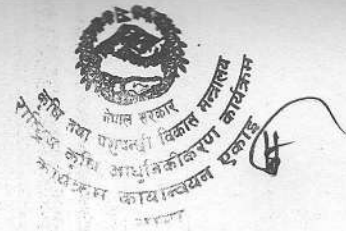 नेपाल सरकार
कृषि तथा पशुपन्छी विकास मन्त्रालय
कृषि आधुनिकीकरण कार्यक्रम
कार्यक्रम कार्यान्वयन एकाइ